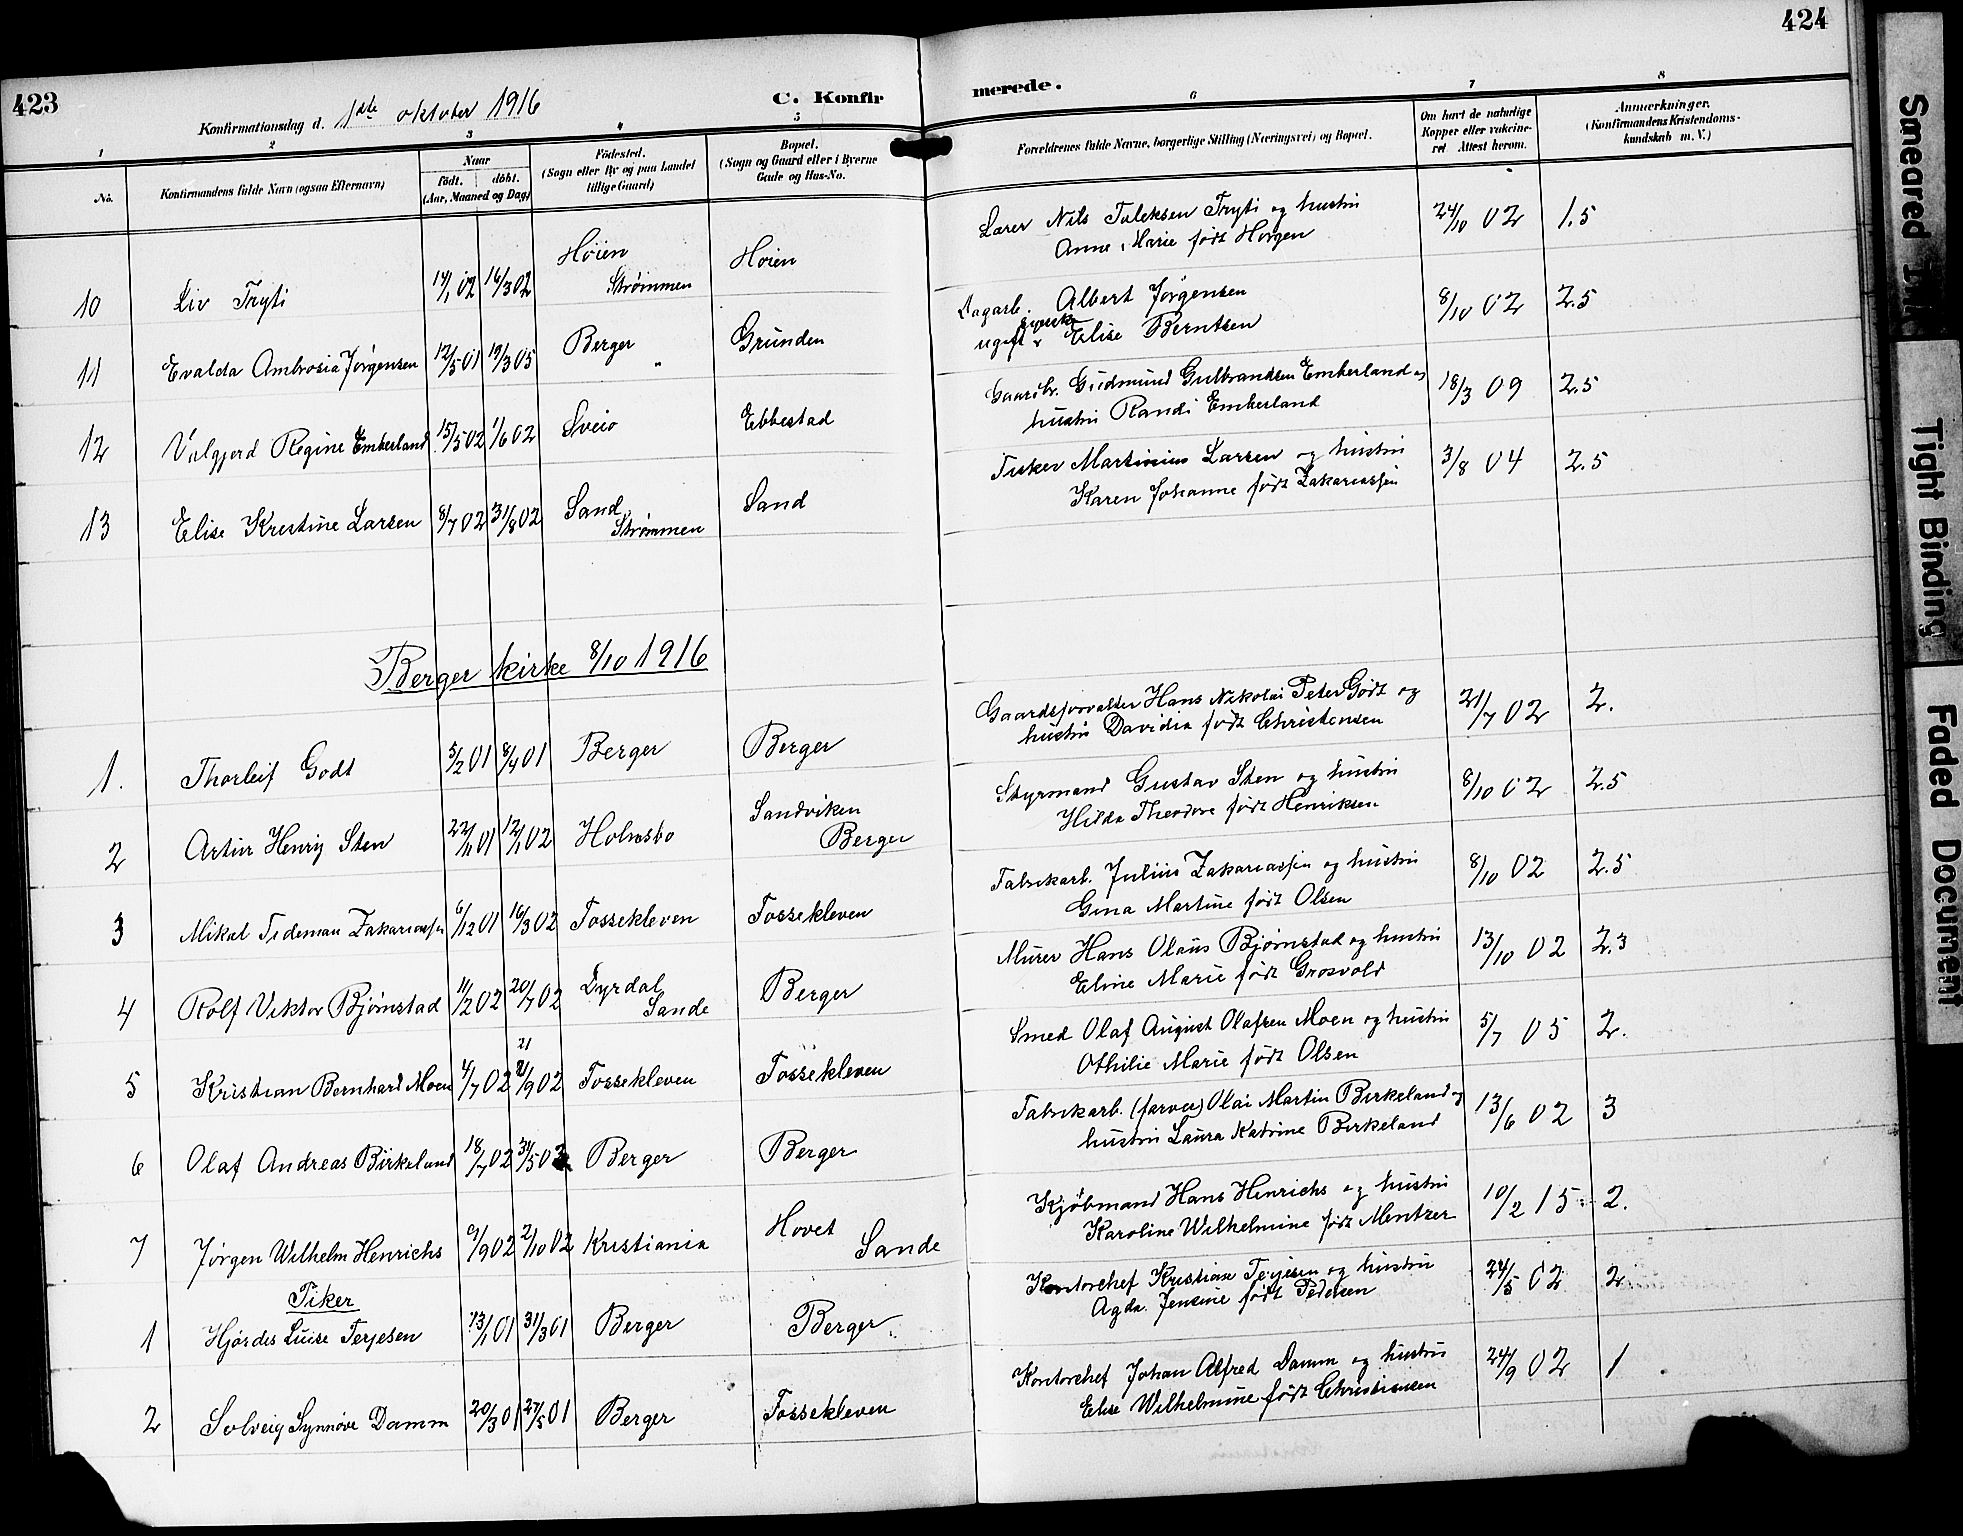 423
424
Konfirmationsdag d. 1ste oktober 1916
C. Konfir
merede.
1 2 3 4 5 6 7 8
No.
Konfirmandens fulde Navn (ogsaa Efternavn)
Naar
født. døbt.
(Aar, Maaned og Dag)
Fødested.
(Sogn eller By og paa Landet
tillige Gaard)
Bopæl.
(Sogn og Gaard eller i Byerne
Gade og Hus-No.
Forældrenes fulde Navne, borgerlige Stilling (Næringsvei) og Bopæl.
Om havt de naturlige
Kopper eller vakcine-
ret Attest herom.
Anmærkninger.
(Konfirmandens Kristendoms-
kundskab m. V.)
10 Liv Tryti 14/1 02 16/3 02 Høien Strømmen Høien
Lærer Nils Tuleksen Tryti og hustru
Anne Marie født Horgen 24/10 02 1.5
11 Evalda Ambrosia Jørgensen 12/5 01 19/3 05 Berger " Grunden
Dagarb. Albert Jørgensen
ugift Elise Berntsen 8/10 02 2.5
12 Valgjerd Regine Emberland 15/5 02 1/6 02 Sveio Ebbestad
Gaardbr. Gudmund Gulbrandsen Emberland og
hustru Randi Emberland 18/3 09 2.5
13 Elise Kristine Larsen 8/7 02 31/8 02 Sand Strømmen Sand
Fisker Martinius Larsen og hustru
Karen Johanne født Zakariassen 3/8 04 2.5
Berger kirke 8/10 1916
1. Thorleif Godt 5/2 01 8/4 01 Berger Berger
Gaardsforvalter Hans Nikolai Peter Godt og
hustru Davidia født Christensen 21/7 02 2.
2 Artur Henry Sten 22/11 01 12/1 02 Holmsbo Sandviken Berger
Styrmand Gustav Sten og hustru
Hilda Theodore født Henriksen 8/10 02 2.5
3 Mikal Tideman Zakariassen 6/12 01 16/3 02 Fossekleven Fossekleven
Fabrikarb. Julius Zakariassen og hustru
Gina Martine født Olsen 8/10 02 2.5
4 Rolf Viktor Bjørnstad 11/2 02 20/7 02 Dyrdal Sande Berger
Murer Hans Olaus Bjørnstad og hustru
Eline Marie født Grosvold 13/10 02 2.3
5 Kristian Bernhard Moen 4/7 02 21/9 02 Fossekleven Fossekleven
Smed Olaf August Olafsen Moen og hustru
Othilie Marie født Olsen 5/7 05 2.
6 Olaf Andreas Birkeland 18/7 02 31/5 03 Berger Berger
Fabrikarb. (farver) Olai Martin Birkeland og
hustru Laura Katrine Birkeland 13/6 02 3
7 Jørgen Wilhelm Henrichs 9/9 02 2/10 02 Kristiania Hovet Sande
Kjøbmand Hans Henrichs og hustru
Karoline Wilhelmine født Mentzer 10/2 15 2.
Piker
1 Hjørdis Luise Terjesen 13/1 01 31/3 01 Berger Berger
Kontorchef Kristian Terjesen og hustru
Agda Jensine født Pedersen 24/5 02 2
2 Solveig Synnøve Damm 20/3 01 27/5 01 Berger Fossekleven
Kontorchef Johan Alfred Damm og hustru
Elise Wilhelmine født Christiansen 24/9 02 1
Smeared Ink
Tight Binding
Faded Document